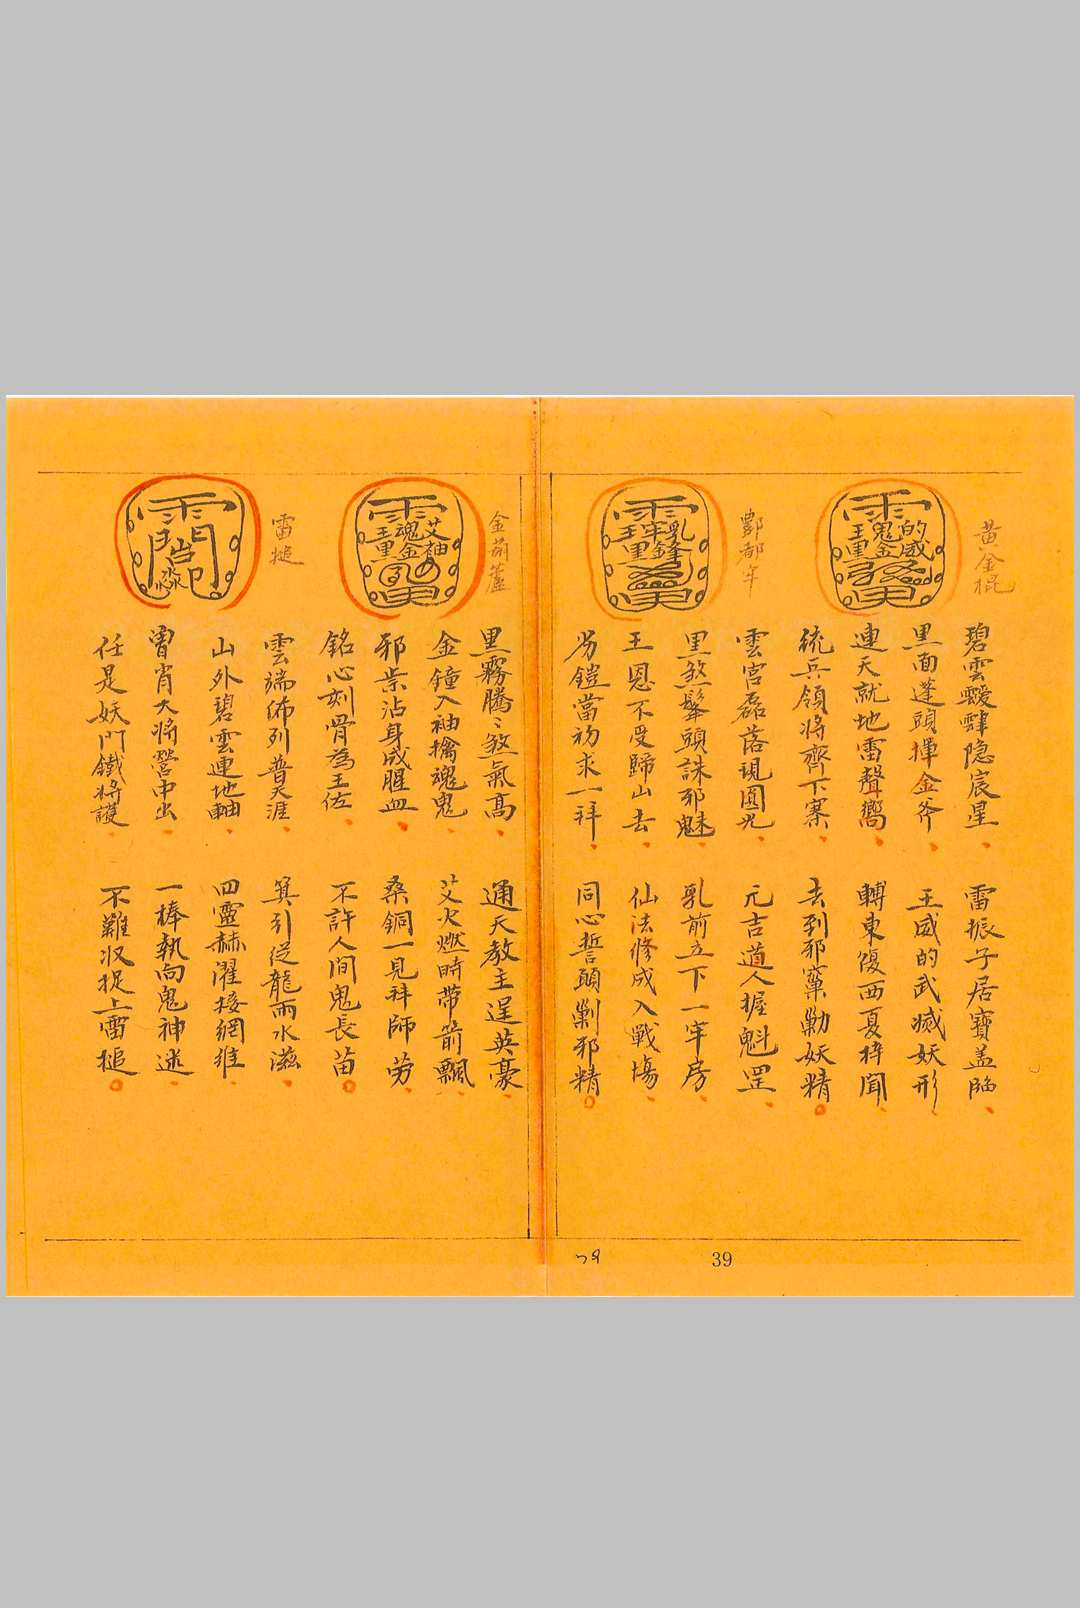 黃金棍
碧雲靉靆隐宸星
雷振子居寶盖臨
黑面蓬頭揮金斧
王威的武滅妖形
連天就地雷聲嚮
轉東復西憂梓聞
統兵領將齊下寨
去到邪窠勦妖精
酆都牢
雲宮磊落現圓光
元吉道人握魁罡
黑煞髼頭誅邪魅
乳前立下一牢房
王恩不受歸山去
仙法修成入戰場
当鎧當初求一拜
同心誓願剿邪精
金葫蘆
黑霧騰〻煞氣高
通天教主逞英豪
金鐘入袖擒魂鬼
艾火燃時帶箭飄
邪祟沾身成腥血
桑銅一見拜師劳
銘心刻骨為王佐
不許人間鬼長苗
雷槌
雲端佈列普天涯
箕引從龍雨水滋
山外碧雲連地軸
四靈赫濯接網維
霄大將營中出
一棒執向鬼神迷
任是妖門鐵將護
不難收捉上雷槌
39